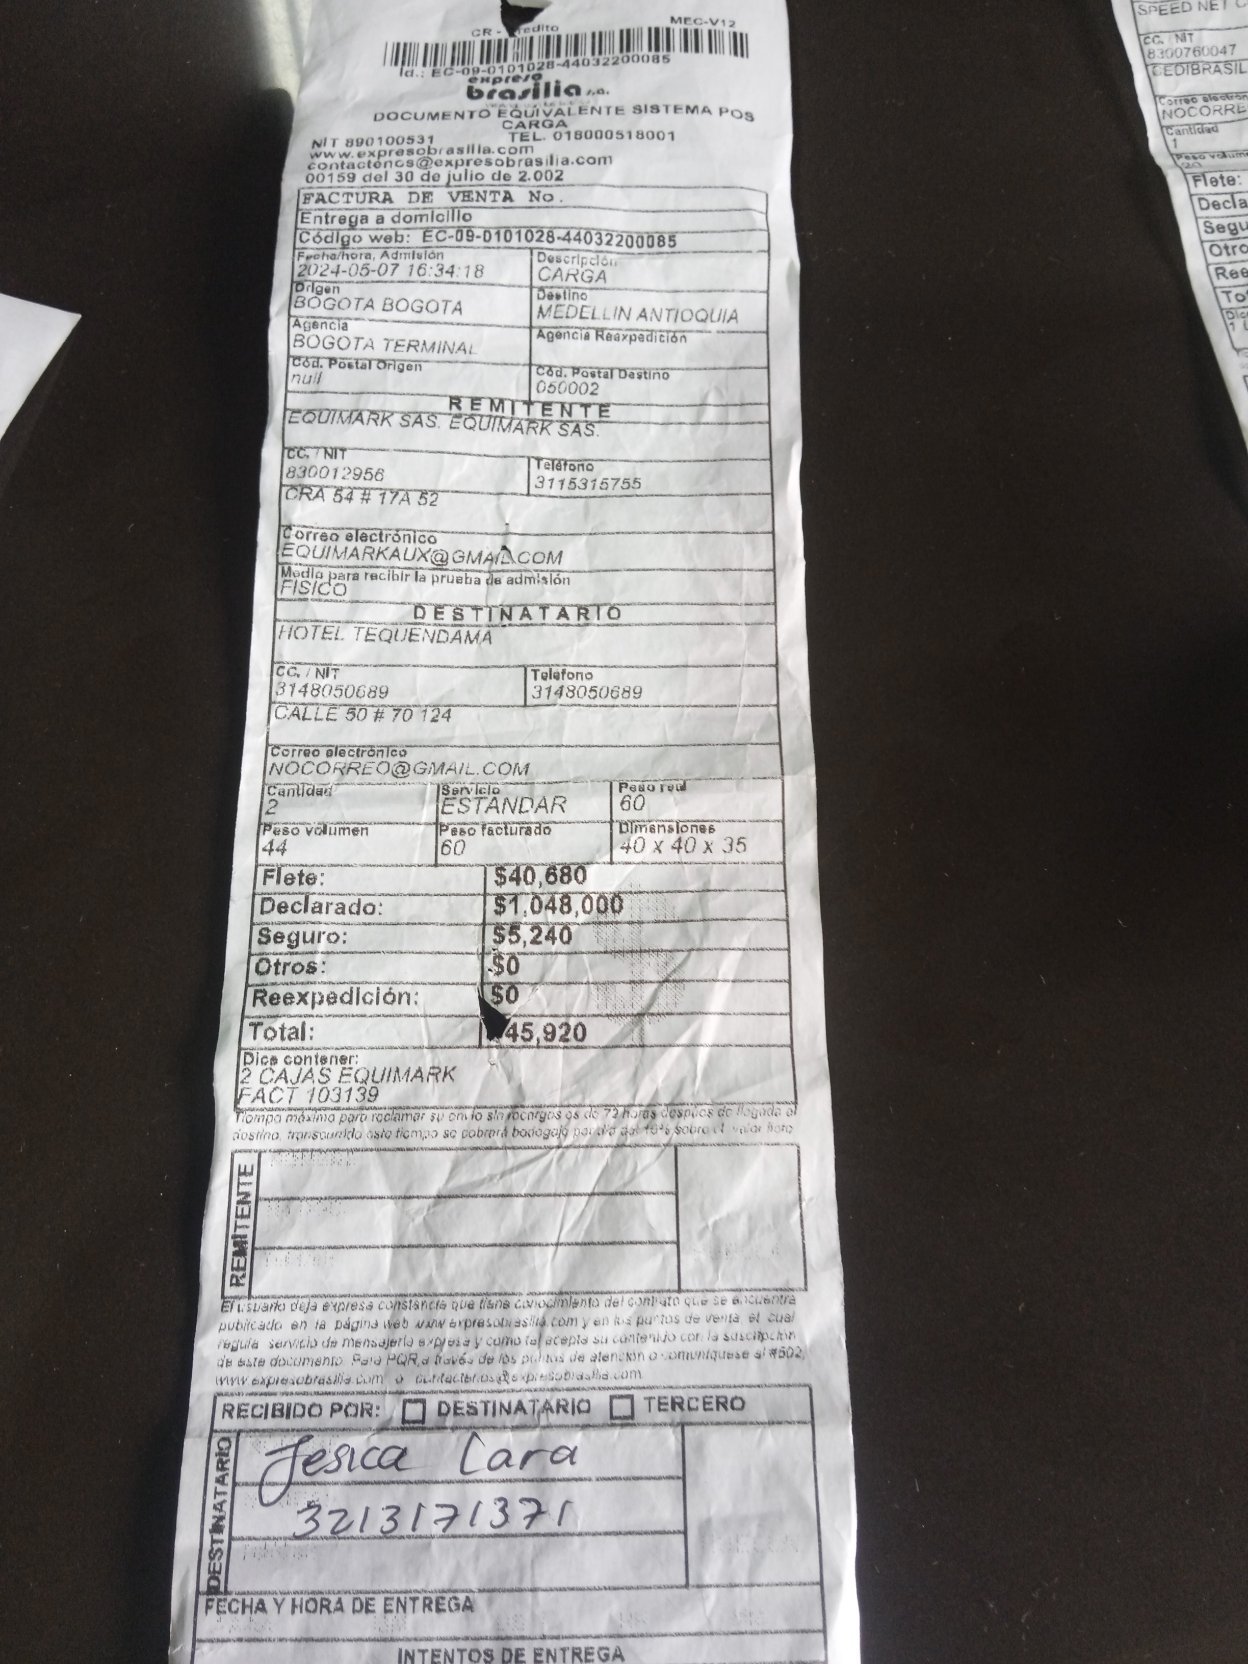 CR - Credito
MEC-V12
Id.: EC-09-0101028-44032200085
expreso
brasilia s.a.
DOCUMENTO EQUIVALENTE SISTEMA POS
CARGA
NIT 890100531 TEL. 018000518001
www.expresobrasilia.com
contactenos@expresobrasilia.com
00159 del 30 de julio de 2.002
FACTURA DE VENTA No.
Entrega a domicilio
Código web: EC-09-0101028-44032200085
Fecha/hora, Admisión Descripción
2024-05-07 16:34:18 CARGA
Origen Destino
BOGOTA BOGOTA MEDELLIN ANTIOQUIA
Agencia Agencia Reexpedición
BOGOTA TERMINAL
Cód. Postal Origen Cód. Postal Destino
null 050002
REMITENTE
EQUIMARK SAS. EQUIMARK SAS.
CC. / NIT Teléfono
830012956 3115315755
CRA 54 # 17A 52
Correo electrónico
EQUIMARKAUX@GMAIL.COM
Medio para recibir la prueba de admisión
FISICO
DESTINATARIO
HOTEL TEQUENDAMA
CC. / NIT Telefono
3148050689 3148050689
CALLE 50 # 70 124
Correo electrónico
NOCORREO@GMAIL.COM
Cantidad Servicio Peso real
2 ESTANDAR 60
Peso volumen Peso facturado Dimensiones
44 60 40 x 40 x 35
Flete: $40,680
Declarado: $1,048,000
Seguro: $5,240
Otros: $0
Reexpedición: $0
Total: 45,920
Dice contener:
2 CAJAS EQUIMARK
FACT 103139
Tiempo máximo para reclamar su envío sin recargos es de 72 horas después de llegada al
destino, transcurrido este tiempo se cobrará bodegaje por día del 10% sobre el valor flete
REMITENTE
El usuario deja expresa constancia que tiene conocimiento del contrato que se encuentra
publicado en la página web www.expresobrasilia.com y en los puntos de venta, el cual
regula servicio de mensajería expresa y como tal acepta su contenido con la suscripción
de este documento. Para PQR, a través de los puntos de atención o comuníquese al #502,
www.expresobrasilia.com o contactenos@expresobrasilia.com
RECIBIDO POR: DESTINATARIO TERCERO
DESTINATARIO
Jesica Lara
3213171371
FECHA Y HORA DE ENTREGA
INTENTOS DE ENTREGA
SPEED NET
CC. / NIT
8300760047
CEDIBRASIL
NOCORRE
Cantidad
1
Peso volum
Flete:
Decla
Segu
Otro
Ree